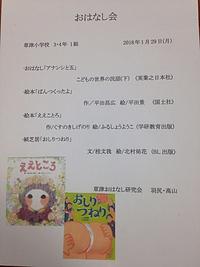 おはなし会
草津小学校 3・4年 1組
2018年1月29日(月)
・おはなし「アナンシと五」
こどもの世界の民話(下)(実業之日本社)
・絵本「ぱんつくったよ」
作/平田昌広 絵/平田景 (国土社)
・絵本「ええところ」
作/くすのきしげのり 絵/ふるしょうようこ (学研教育出版)
・紙芝居「おしりつねり」
文/桂文我 絵/北村裕花 (BL出版)
ええところ
おしりつねり
草津おはなし研究会 羽民・高山